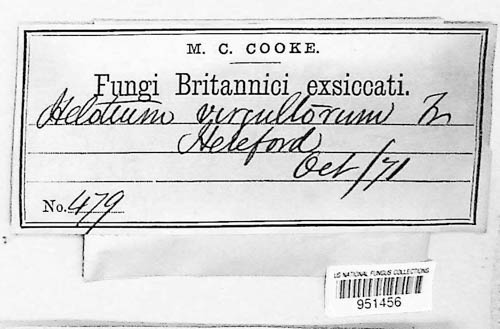 M. C. COOKE.
Fungi Britannici exsiccati.
Helotium virgultorum Fr
Hereford
Oct/71
No. 479
US NATIONAL FUNGUS COLLECTIONS
951456